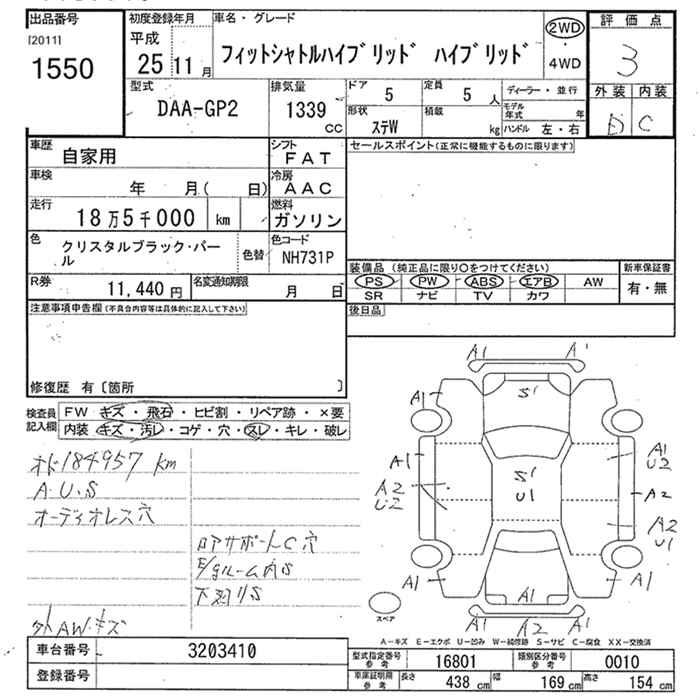 出品番号
[2011]
1550
初度登録年月
平成
25 11月
車名・グレード
フィットシャトルハイブリッド ハイブリッド
2WD
・
4WD
評価点
3
外装 内装
D C
型式
DAA-GP2
排気量
1339
CC
ドア
5
定員
5 人
形状
ステW
積載
kg
ディーラー・並行
モデル
年式 年
ハンドル 左・右
車歴
自家用
シフト
FAT
車検
年 月( 日)
冷房
AAC
走行
18万5千000 km
燃料
ガソリン
色
クリスタルブラック・パー
ル
色替
色コード
NH731P
R券
11,440 円
名変通知期限
月 日
セールスポイント(正常に機能するものに限ります)
装備品 (純正品に限り○をつけてください)
新車保証書
PS PW ABS エアB AW
SR ナビ TV カワ
有・無
後日品
注意事項申告欄(不具合内容等は具体的に記入して下さい)
修復歴 有〔箇所 〕
検査員
記入欄
FW キズ・飛石・ヒビ割・リペア跡・×要
内装 キズ・汚レ・コゲ・穴・スレ・キレ・破レ
オド184957km
A.U.S
オーディオレス穴
ロアサポートC穴
E/gルーム内S
下廻りS
外AWキズ
A1 A1
A1
S1
A1
A1
U2
A2
U2
S1
U1
A2
A2
U1
A1
A1
A1 A2 A1
スペア
A-キズ E-エクボ U-凹み W-補修跡 S-サビ C-腐食 XX-交換済
車台番号 3203410
登録番号
型式指定番号
参考
16801
類別区分番号
参考
0010
車庫証明用
参考
長さ 438 cm 幅 169 cm 高さ 154 cm